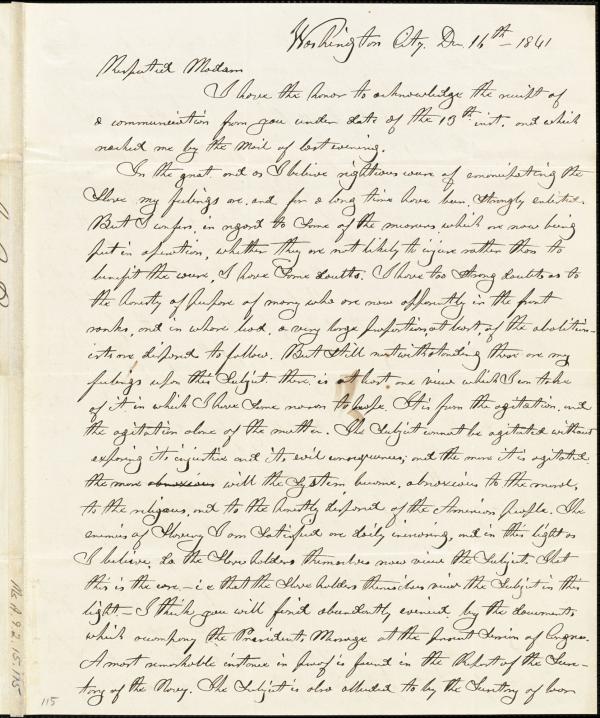 Washington City, Dec 16th - 1841
Respected Madam
I have the honor to acknowledge the receipt of
a communication from you under date of the 13th inst. and which
reached me by the Mail of last evening.
In the great and as I believe righteous cause of emancipating the
Slave my feelings are, and for a long time have been strongly enlisted.
But I confess, in regard to some of the measures which are now being
put in operation, whether they are not likely to injure rather than to
benefit the cause, I have some doubts. I have too strong doubts as to
the honesty of purpose of many who are now apparently in the front
ranks, and in whose lead, a very large proportion, at least, of the abolition-
ists are disposed to follow. But still notwithstanding these are my
feelings upon this Subject there, is at least one view which I can take
of it in which I have some reason to hope. It is from the agitation, and
the agitation alone of the matter. The Subject cannot be agitated without
exposing its injustice and its evil consequences; and the more it is agitated
the more obnoxious will the System become, obnoxious to the moral,
to the religious, and to the honestly disposed of the American people. The
enemies of Slavery I am satisfied are daily increasing, and in this light as
I believe, do the Slave holders themselves now view the Subject. That
this is the case - i.e that the Slave holders themselves view the Subject in this
light - I think you will find abundantly evinced by the documents
which accompany the Presidents Message at the present Session of Congress.
A most remarkable instance in proof is found in the Report of the Secre-
tary of the Navy. The Subject is also alluded to by the Secretary of War
Ms. A. 9.2.15.115
115